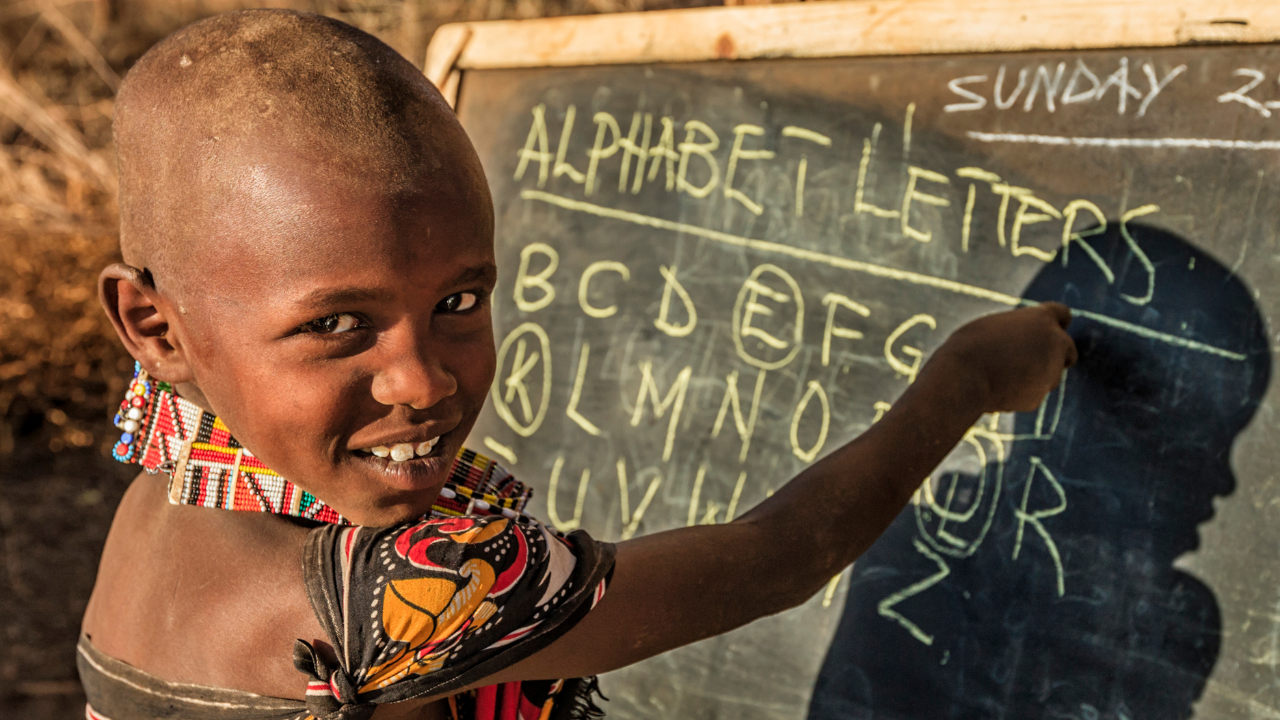 SUNDAY 2
ALPHABET LETTERS
B C D E F G
K L M N O R
U V W Z